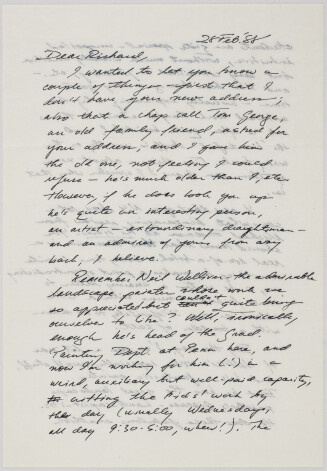 28 Feb '88
Dear Richard,
I wanted to let you know a
couple of things – first that I
don't have your new address;
also that a chap call Tom George,
an old family friend, asked for
your address, and I gave him
the old one, not feeling I could
refuse – he's much older than I, etc.
However, if he does look you up
he's quite an interesting person,
an artist – extraordinary draughtsman –
and an admirer of yours from way
back, I believe.
Remember Neil Welliver the admirable
landscape painter whose work we
so appreciated but couldn't quite bring
ourselves to like? Well, ironically
enough he's head of the Grad.
Painting Dept. at Penn here, and
now I'm working for him (!) in a
weird, auxiliary but well-paid capacity,
critting the kids' work by
the day (usually Wednesdays,
all day 9:30-5:00, whew!). The